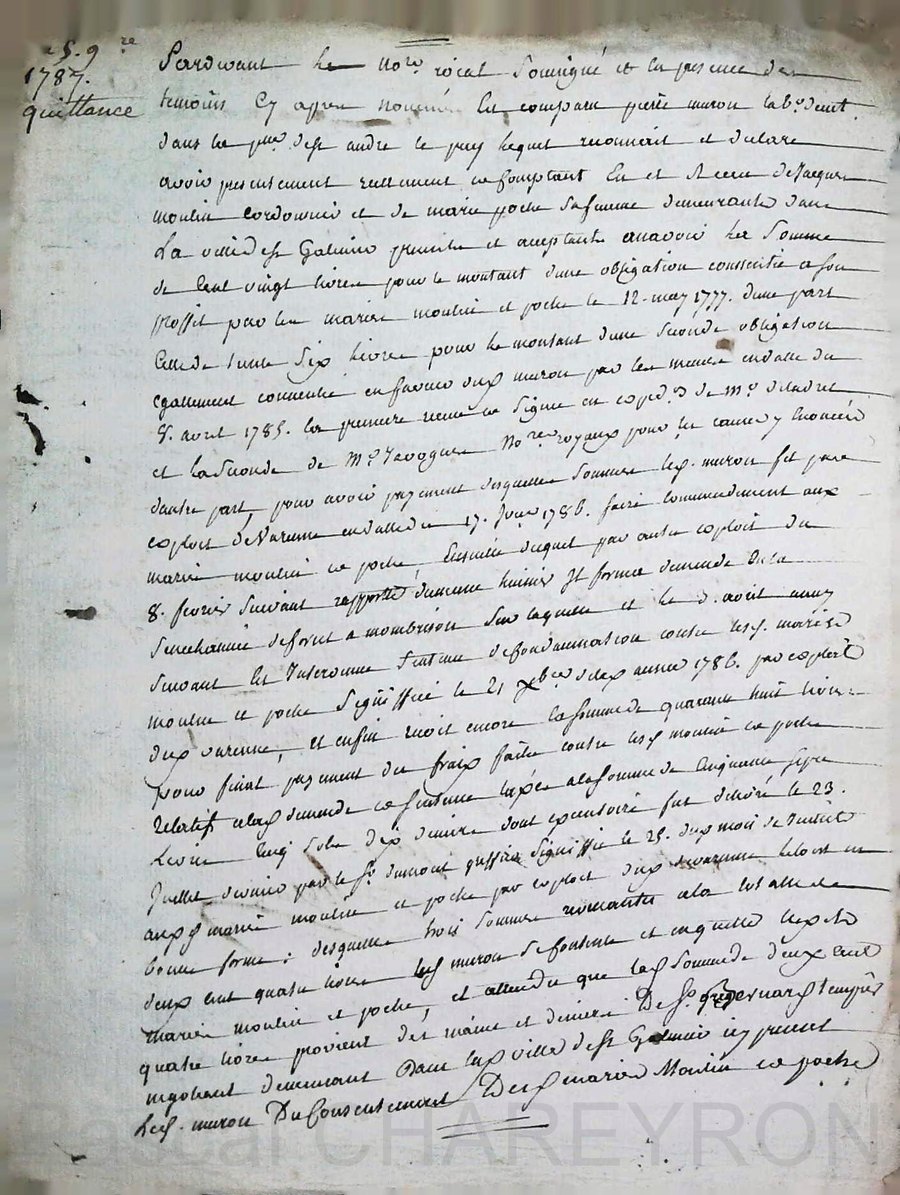 5. 9re
1787.
quittance
Pardevant le nore roial soussigné et en presence des
temoins cy apres nommés en comparu pierre muron labr demt.
dans la psse de st andre le puy lequel reconnait et declare
avoir presentement reellement ce comptant eu et receu de Jacques
moulin cordonnier et de marie poche sa femme demeurants dans
La ville de st Galmier presents et acceptants a savoir la somme
de cent vingt livres pour le montant d'une obligation consentie a son
proffit par les mariés moulin et poche le 12. may 1777. d'une part
Celle de six livres pour le montant d'une seconde obligation
egallement consentie en faveur dud muron par les memes en datte du
8. avril 1785. la premiere reçue ce signée en expedon de Me
et la seconde de Me nores royaux pour les causes y enoncées
d'autre part, pour avoir payement desquelles sommes led. muron fit par
exploit de Varenne en datte du 17. 1786. faire commandement aux
mariés moulin ce poche, ensuite duquel par autre exploit du
8. fevrier suivant rapporté huissier Il forma demande en la
senechaussée de forest a monbrison sur laquelle et le aoust
suivant Est Intervenue sentence de condamnation contre lesd. mariés
moulin et poche signiffiée le 21 xbre de lad année 1786. par exploit
dud varenne, et enfin reçoit encore la somme de quarante huit livres
pour final payement des frais faits contre lesd moulin ce poche
relatifs alad demande ce sentence taxés a la somme de cinquante sept
Livres cinq sols dix deniers dont executoire fut delivré le 23.
Juillet dernier par le Sr dumont greffier signiffié le 25. dud mois de Juillet
auxd mariés moulin et poche par exploit dud varenne le tout en
bonne forme: desquelles trois sommes remontantes a la totalle de
deux cent quatre livres led muron se contente et en quitte lesd
mariés moulin et poche, et attendu que lad somme de deux cent
quatre livres provient des mains et deniers De Sr
negotiant demeurant Dans lad ville de st Galmier icy present
Led. muron Du Consentement Desd mariés Moulin ce poche
Pascal CHAREYRON